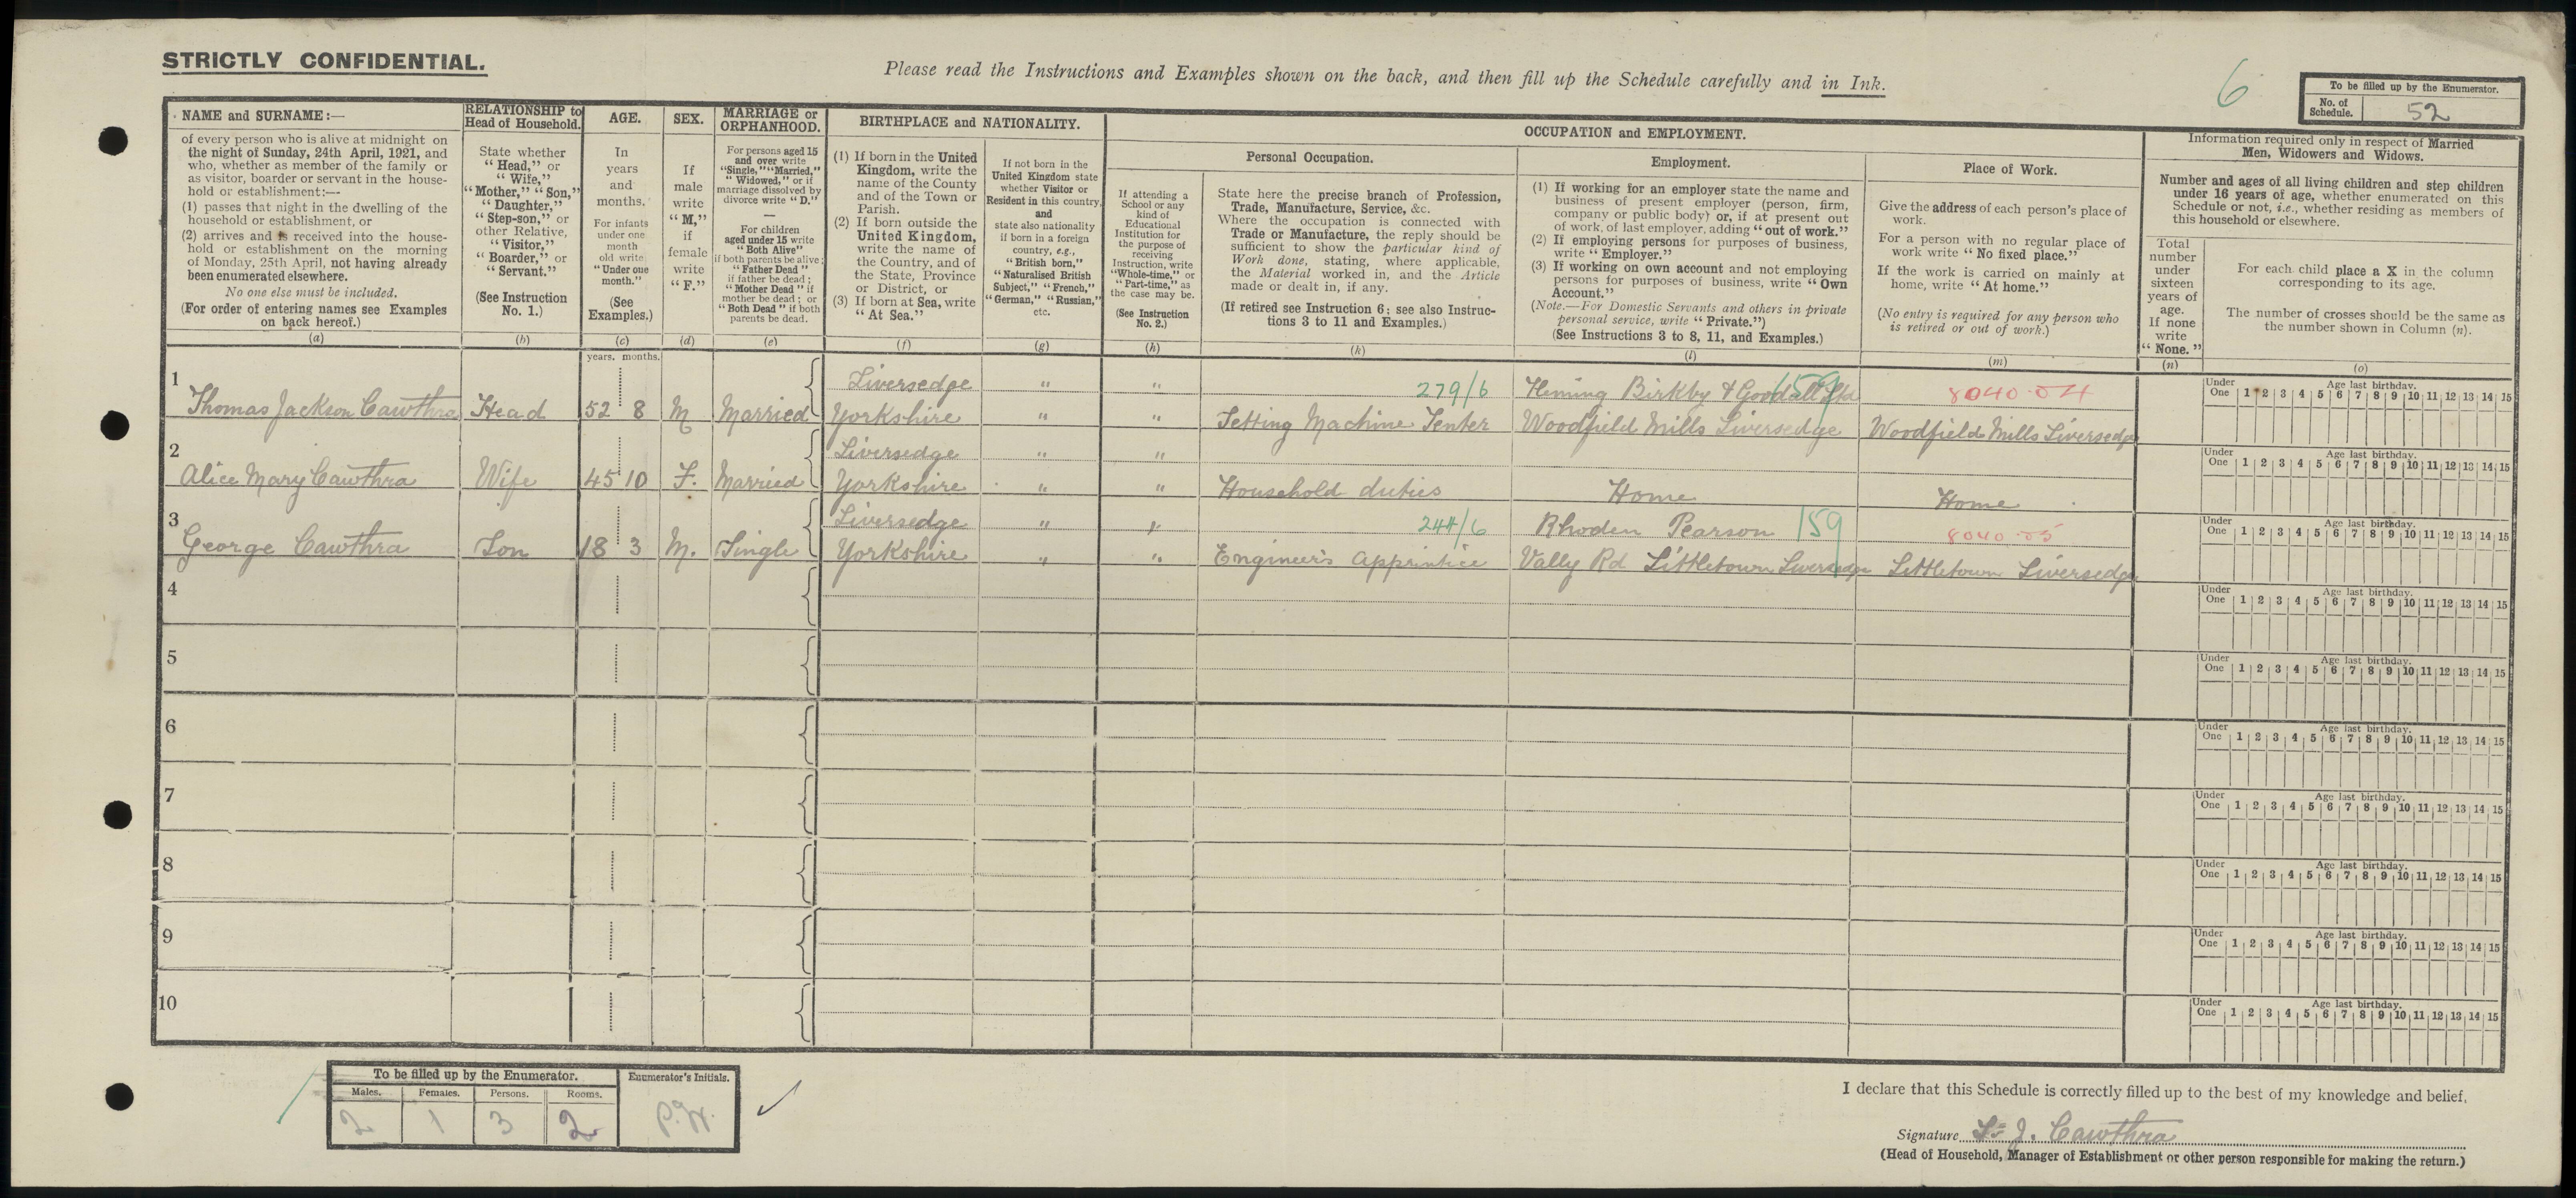 STRICTLY CONFIDENTIAL.
Please read the Instructions and Examples shown on the back, and then fill up the Schedule carefully and in Ink.
6
To be filled up by the Enumerator.
No. of Schedule. 52
NAME and SURNAME:—
of every person who is alive at midnight on
the night of Sunday, 24th April, 1921, and
who, whether as member of the family or
as visitor, boarder or servant in the house-
hold or establishment:—
(1) passes that night in the dwelling of the
household or establishment, or
(2) arrives and is received into the house-
hold or establishment on the morning
of Monday, 25th April, not having already
been enumerated elsewhere.
No one else must be included.
(For order of entering names see Examples
on back hereof.)
(a)
RELATIONSHIP to
Head of Household.
State whether
"Head," or
"Wife,"
"Mother," "Son,"
"Daughter,"
"Step-son," or
other Relative,
"Visitor,"
"Boarder," or
"Servant."
(See Instruction
No. 1.)
(b)
AGE.
In
years
and
months.
For infants
under one
month
old write
"Under one
month."
(See
Examples.)
(c)
years. months.
SEX.
If
male
write
"M,"
if
female
write
"F."
(d)
MARRIAGE or
ORPHANHOOD.
For persons aged 15
and over write
"Single," "Married,"
"Widowed," or if
marriage dissolved by
divorce write "D."
—
For children
aged under 15 write
"Both Alive"
if both parents be alive;
"Father Dead"
if father be dead;
"Mother Dead" if
mother be dead; or
"Both Dead" if both
parents be dead.
(e)
BIRTHPLACE and NATIONALITY.
(1) If born in the United
Kingdom, write the
name of the County
and of the Town or
Parish.
(2) If born outside the
United Kingdom,
write the name of
the Country, and of
the State, Province
or District, or
(3) If born at Sea, write
"At Sea."
(f)
If not born in the
United Kingdom state
whether Visitor or
Resident in this country,
and
state also nationality
if born in a foreign
country, e.g.,
"British born,"
"Naturalised British
Subject," "French,"
"German," "Russian,"
etc.
(g)
OCCUPATION and EMPLOYMENT.
Personal Occupation.
If attending a
School or any
kind of
Educational
Institution for
the purpose of
receiving
Instruction, write
"Whole-time," or
"Part-time," as
the case may be.
(See Instruction
No. 2.)
(h)
State here the precise branch of Profession,
Trade, Manufacture, Service, &c.
Where the occupation is connected with
Trade or Manufacture, the reply should be
sufficient to show the particular kind of
Work done, stating, where applicable,
the Material worked in, and the Article
made or dealt in, if any.
(If retired see Instruction 6; see also Instruc-
tions 3 to 11 and Examples.)
(k)
Employment.
(1) If working for an employer state the name and
business of present employer (person, firm,
company or public body) or, if at present out
of work, of last employer, adding "out of work."
(2) If employing persons for purposes of business,
write "Employer."
(3) If working on own account and not employing
persons for purposes of business, write "Own
Account."
(Note.—For Domestic Servants and others in private
personal service, write "Private.")
(See Instructions 3 to 8, 11, and Examples.)
(l)
Place of Work.
Give the address of each person's place of
work.
For a person with no regular place of
work write "No fixed place."
If the work is carried on mainly at
home, write "At home."
(No entry is required for any person who
is retired or out of work.)
(m)
Information required only in respect of Married
Men, Widowers and Widows.
Number and ages of all living children and step children
under 16 years of age, whether enumerated on this
Schedule or not, i.e., whether residing as members of
this household or elsewhere.
Total
number
under
sixteen
years of
age.
If none
write
"None."
(n)
For each child place a X in the column
corresponding to its age.
The number of crosses should be the same as
the number shown in Column (n).
(o)
1 Liversedge " " 279/6 Fleming Birkby & Goodall Ltd 8040-04
Thomas Jackson Cawthra Head 52 8 M Married Yorkshire " " Setting Machine Tenter Woodfield Mills Liversedge Woodfield Mills Liversedge
Under One 1 2 3 4 5 6 7 8 9 10 11 12 13 14 15 Age last birthday.
2 Liversedge " "
Alice Mary Cawthra Wife 45 10 F. Married Yorkshire " " Household duties Home Home
Under One 1 2 3 4 5 6 7 8 9 10 11 12 13 14 15 Age last birthday.
3 Liversedge " " 244/6 Rhoden Pearson 159 8040-05
George Cawthra Son 18 3 M. Single Yorkshire " " Engineer's Apprintice Vally Rd Littletown Liversedge Littletown Liversedge
Under One 1 2 3 4 5 6 7 8 9 10 11 12 13 14 15 Age last birthday.
4
Under One 1 2 3 4 5 6 7 8 9 10 11 12 13 14 15 Age last birthday.
5
Under One 1 2 3 4 5 6 7 8 9 10 11 12 13 14 15 Age last birthday.
6
Under One 1 2 3 4 5 6 7 8 9 10 11 12 13 14 15 Age last birthday.
7
Under One 1 2 3 4 5 6 7 8 9 10 11 12 13 14 15 Age last birthday.
8
Under One 1 2 3 4 5 6 7 8 9 10 11 12 13 14 15 Age last birthday.
9
Under One 1 2 3 4 5 6 7 8 9 10 11 12 13 14 15 Age last birthday.
10
Under One 1 2 3 4 5 6 7 8 9 10 11 12 13 14 15 Age last birthday.
To be filled up by the Enumerator.
Males. Females. Persons. Rooms.
2 1 3 2
Enumerator's Initials.
P.W.
I declare that this Schedule is correctly filled up to the best of my knowledge and belief,
Signature J. Cawthra
(Head of Household, Manager of Establishment or other person responsible for making the return.)